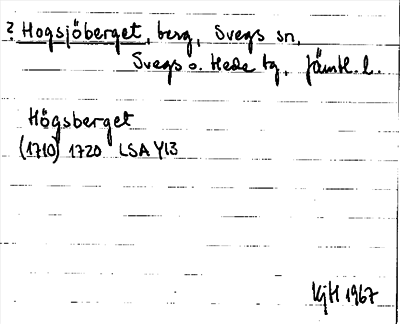 ? Hogsjöberget, berg, Svegs sn,
Svegs o. Hede tg, Jämtl. l.
Högsberget
(1710) 1720 LSA Y13
KjH 1967